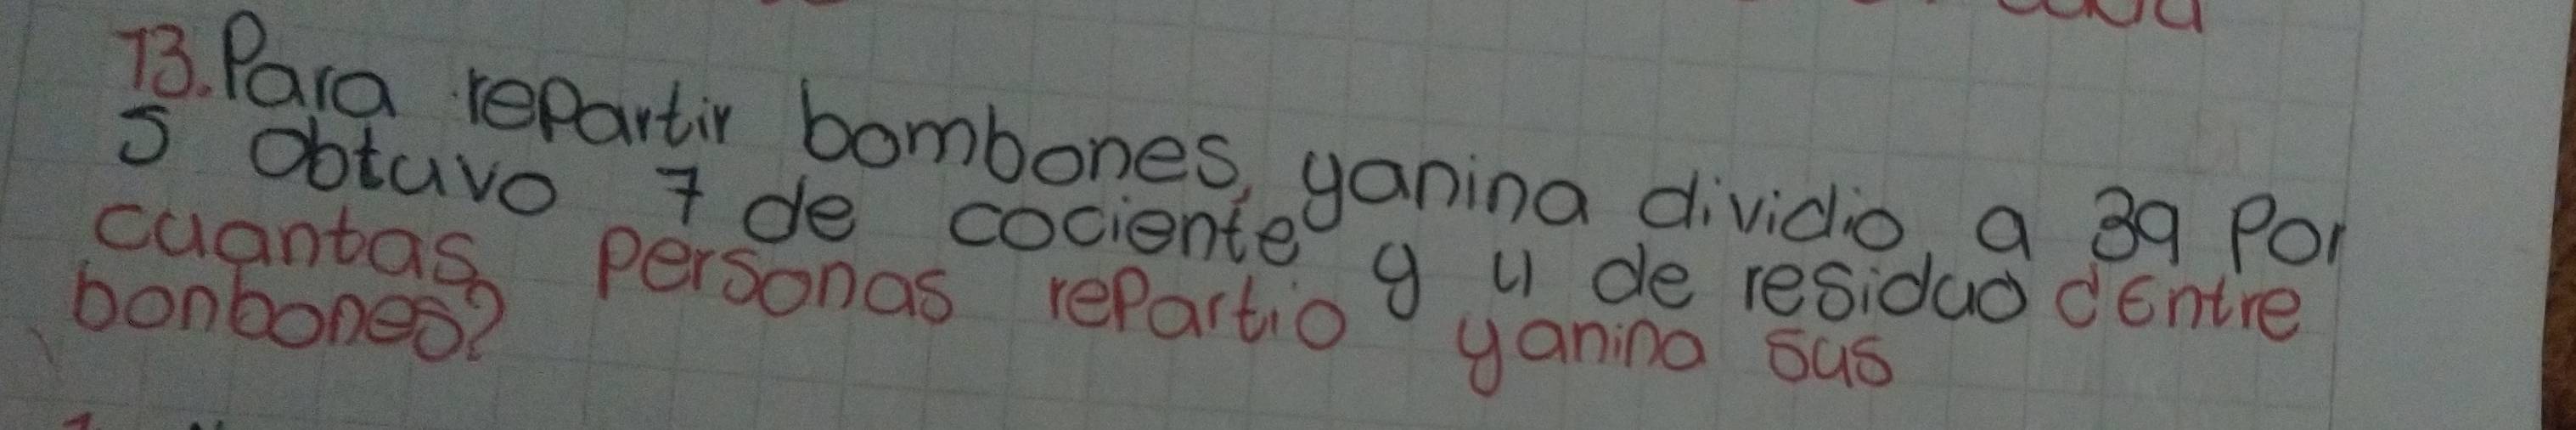 13. Para repartir bombones, yanina dividio a 39 Por
5 obtuvo 7 de cociente y 4 de residuo dEntre
cuantas personas repartio yanina sus
bonbones?